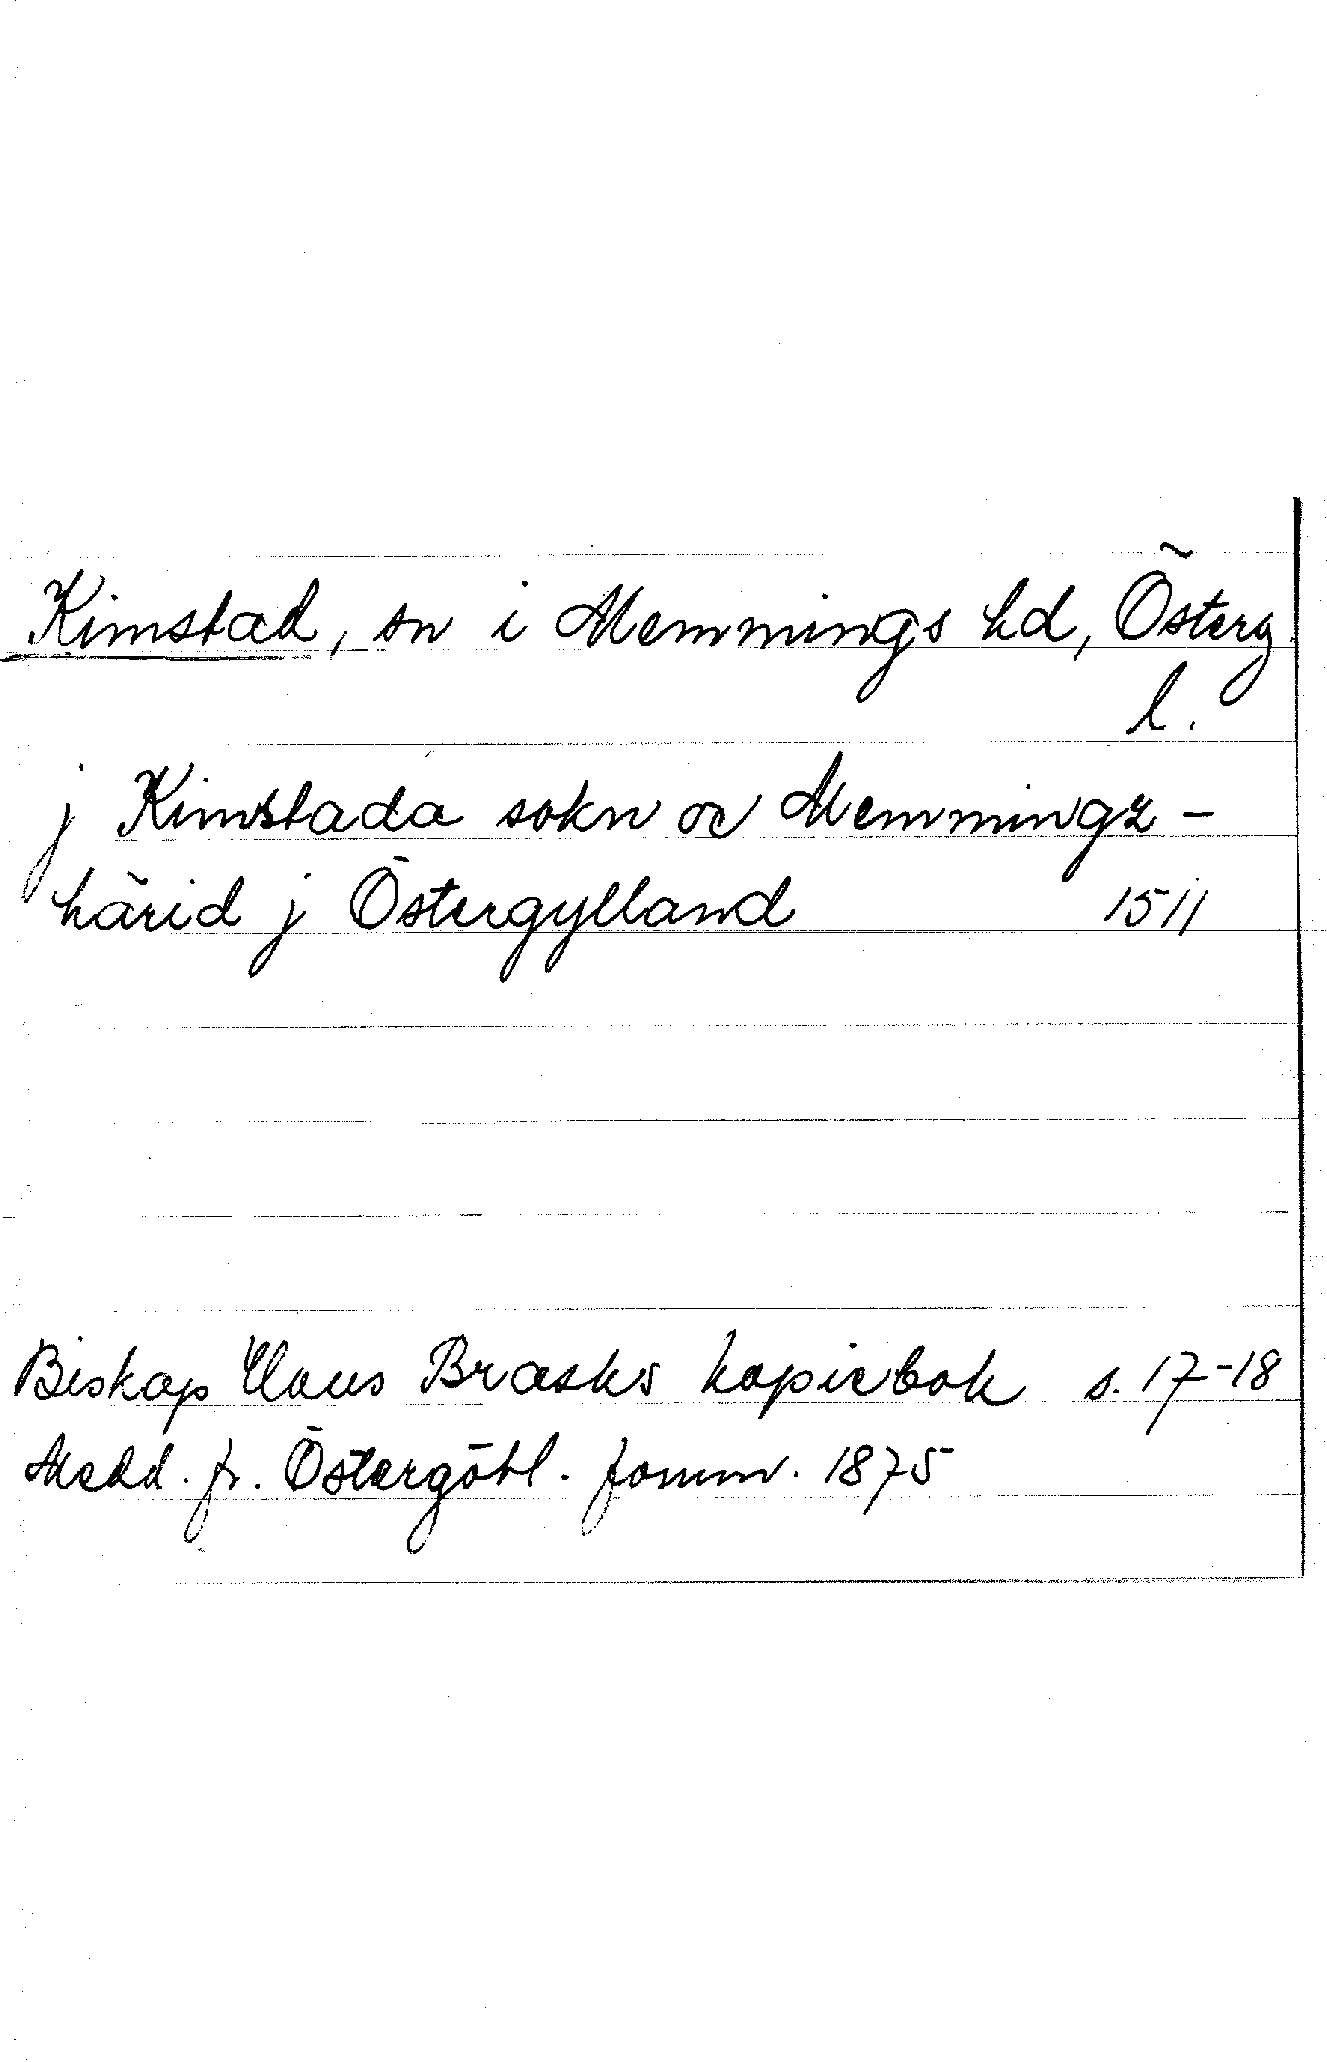 Kimstad, sn i Memmings hd, Österg
l.
j Kimstada sokn oc Memmingz-
härid j Östergylland 1511
Biskop Claus Brasks kopiebok s. 17-18
Medd. fr. Östergötl. fornm. 1875